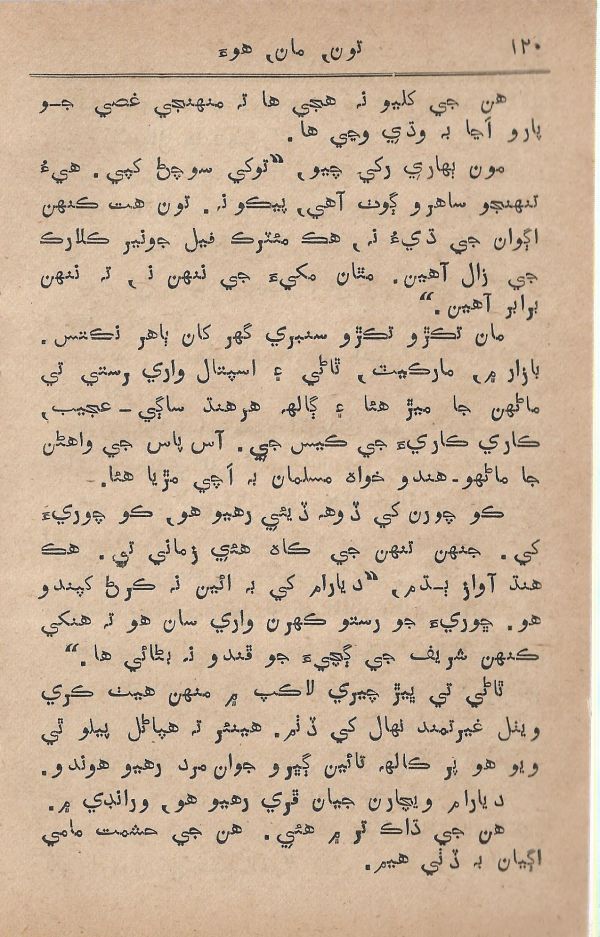 ١٢٠
تون، مان، هوءَ
هن جي کليو نہ هجي ها تہ منهنجي غصي جـو
پارو اَڃا بہ وڌي وڃي ها.
مون ٻهاري رکي چيو، “توکي سوچڻ کپي. هيءُ
تنهنجو ساهرو ڳوٺ آهي، پيڪو نہ. تون هت ڪنهن
اڳواڻ جي ڌيءُ نہ، هڪ مئٽرڪ فيل جونير ڪلارڪ
جي زال آهين. مٿان مکيءَ جي ننهن نہ، تہ ننهن
برابر آهين.“
مان تڪڙو تڪڙو سنبري گهر کان ٻاهر نڪتس.
بازار ۾، مارڪيٽ، ٿاڻي ۽ اسپتال واري رستي تي
ماڻهن جا ميڙ هئا ۽ ڳالهہ هرهنڌ ساڳي - عجيب،
ڪاري ڪاريءَ جي ڪيس جي. آس پاس جي واهڻن
جا ماڻهو-هندو خواه مسلمان بہ اَچي مڙيا هئا.
ڪو چورن کي ڏوهہ ڏيئي رهيو هو، ڪو چوريءَ
کي. جنهن تنهن جي ڪاه هئي زماني تي. هڪ
هنڌ آواز ٻـڌم، “ديارام کي بہ ائين نہ ڪرڻ کپندو
هو. ڇوريءَ جو رستو کهرن واري سان هو تہ هنکي
ڪنهن شريف جي ڳچيءَ جو ڦندو نہ بڻائي ها.“
ٿاڻي تي ڀيڙ چيري لاڪپ ۾ منهن هيٺ ڪري
ويٺل غيرتمند نهال کي ڏٺم. هينئر تہ هپاٽل پيلو ٿي
ويو هو پر ڪالهہ تائين ڳيرو جوان مرد رهيو هوندو.
ديارام ويچارن جيان ڦري رهيو هو، ورانڊي ۾.
هن جي ڌاڪ تر ۾ هئي. هن جي حشمت مامي
اڳيان بہ ڏٺي هيم.